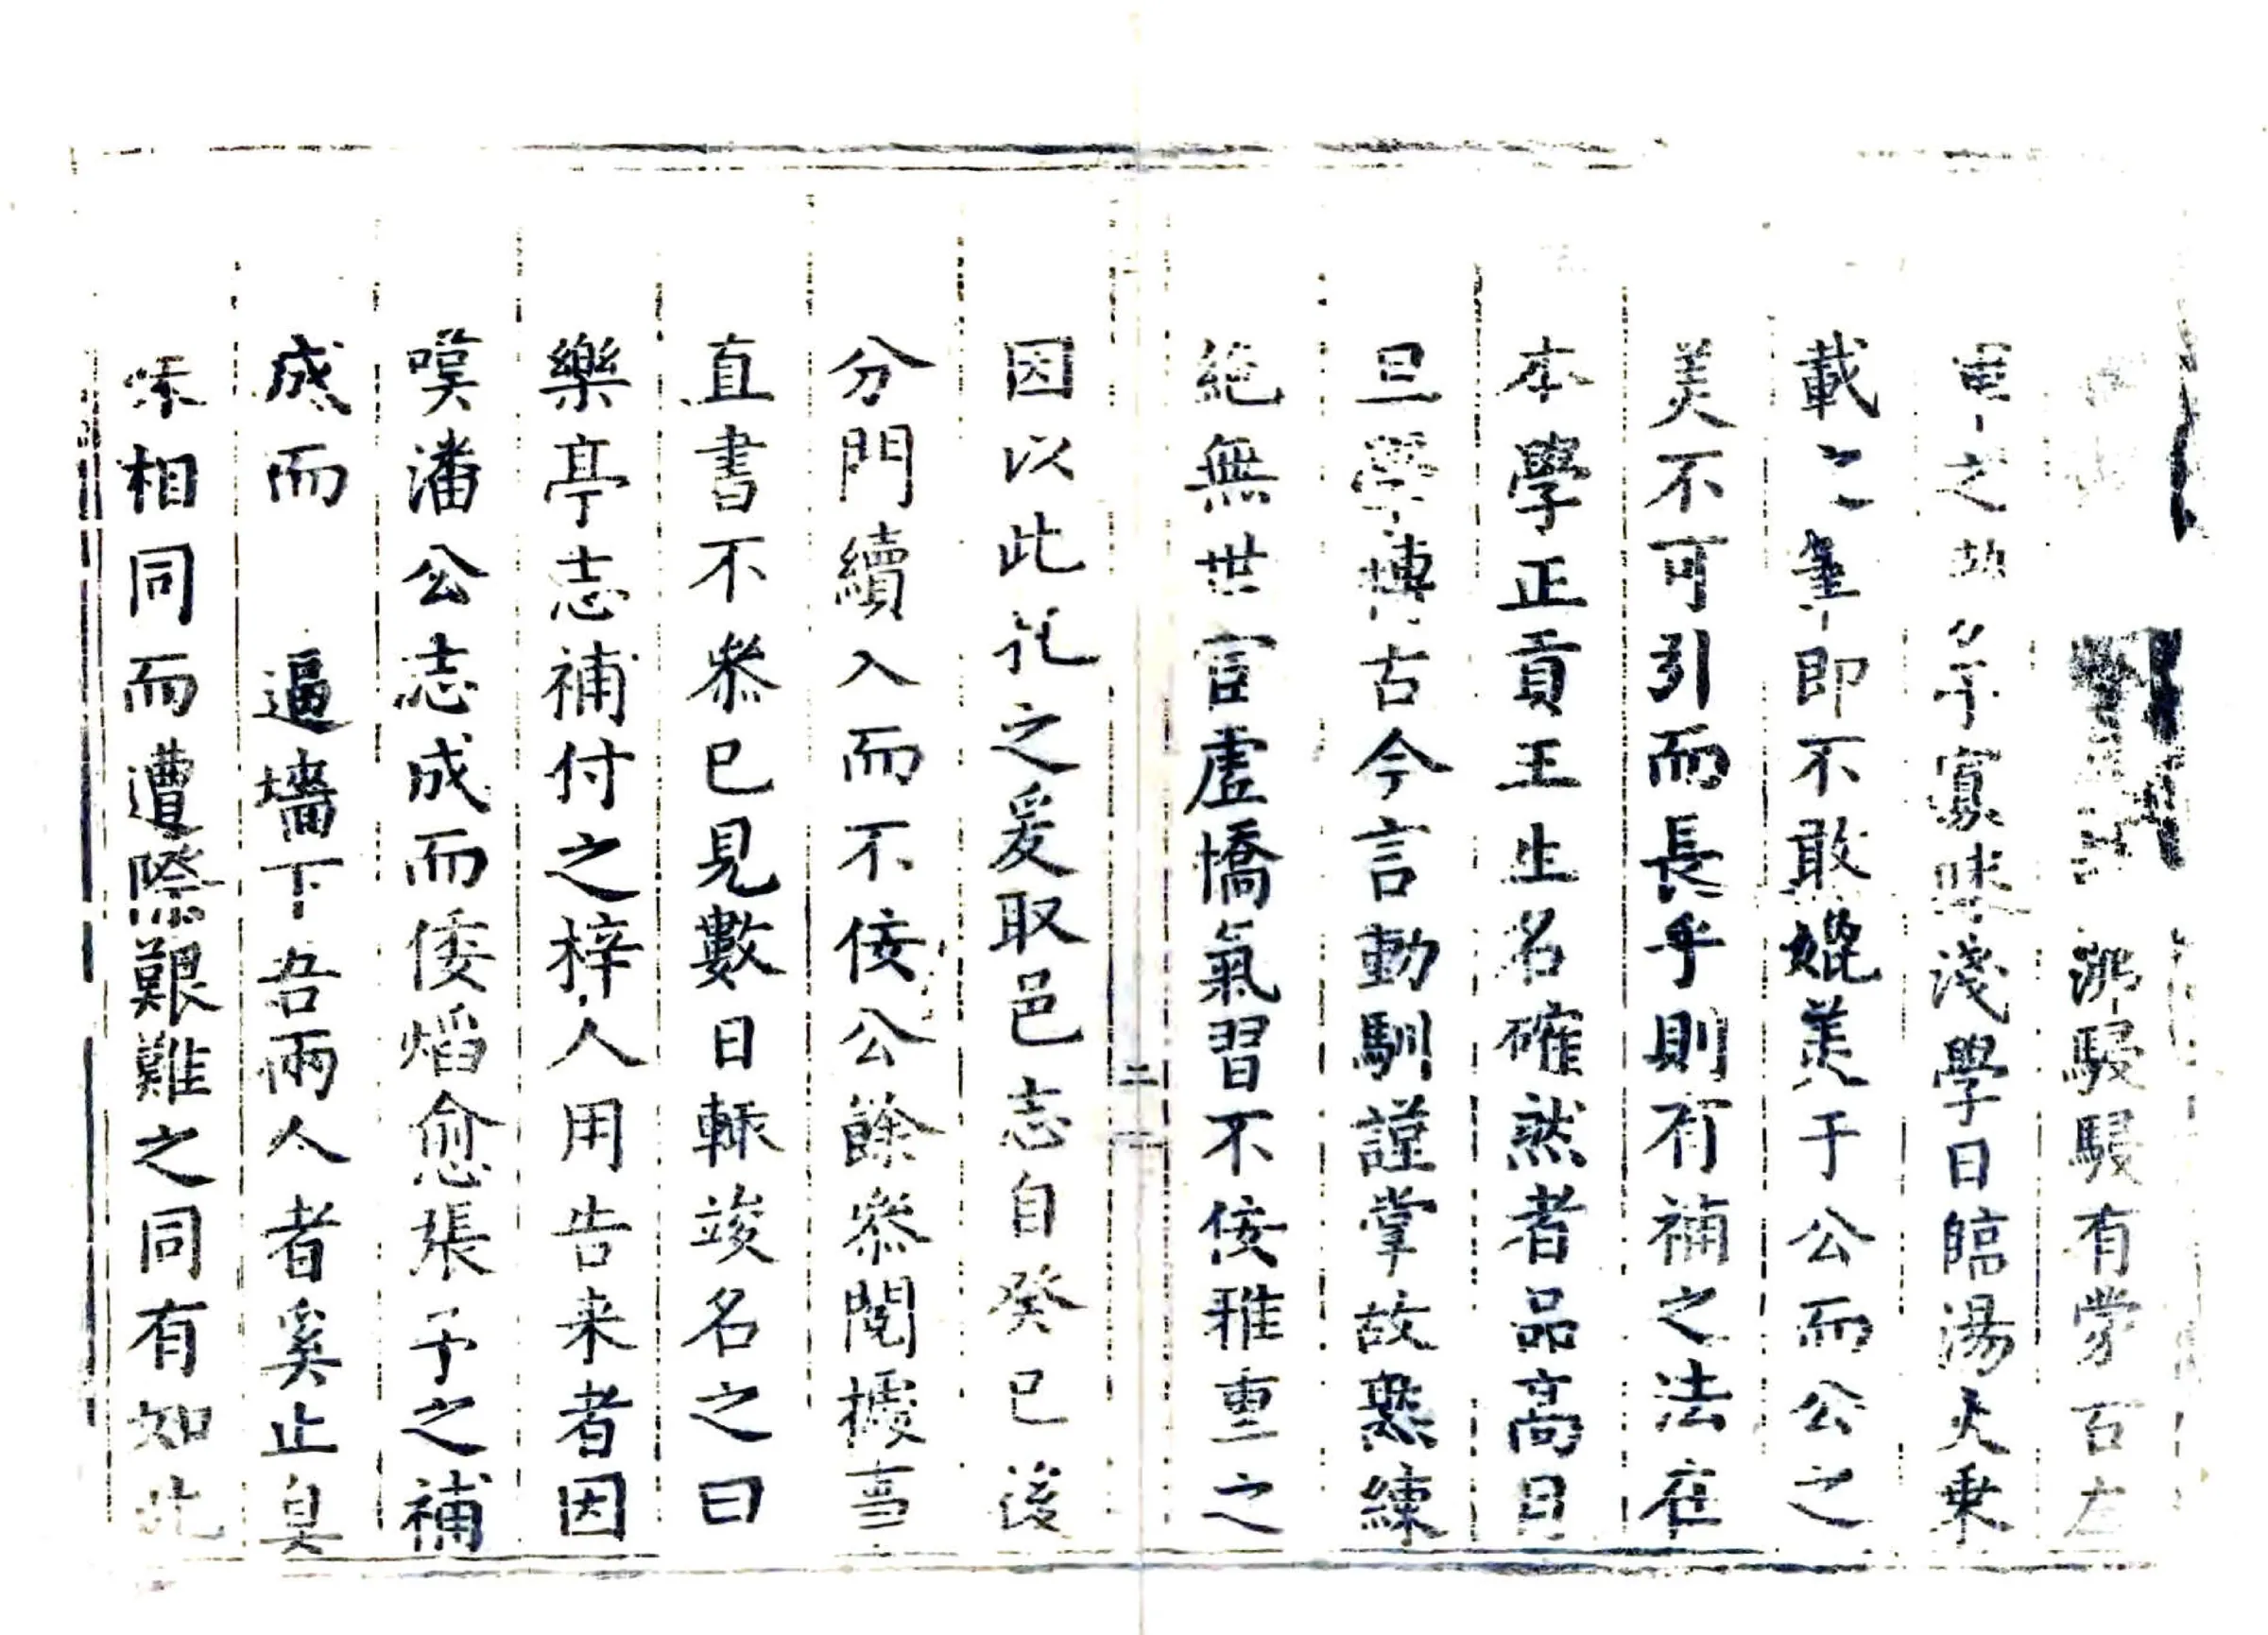 駸駸有
之 子寡昧淺學日臨湯火乘
載之筆即不敢媲美于公而公之
美不可引而長乎則有補之法在
本學正貢王生名確然者品高月
旦學博古今言動馴謹掌故熟練
絕無世宦虛憍氣習不佞雅重之
因以此托之爰取邑志自癸巳後
分門續入而不佞公餘叅閱據事
直書不叅已見數日輒竣名之曰
樂亭志補付之梓人用告来者因
嘆潘公志成而倭熖愈張予之補
成而 逼墻下吾兩人者奚止臭
味相同而遭際艱難之同有如此
二